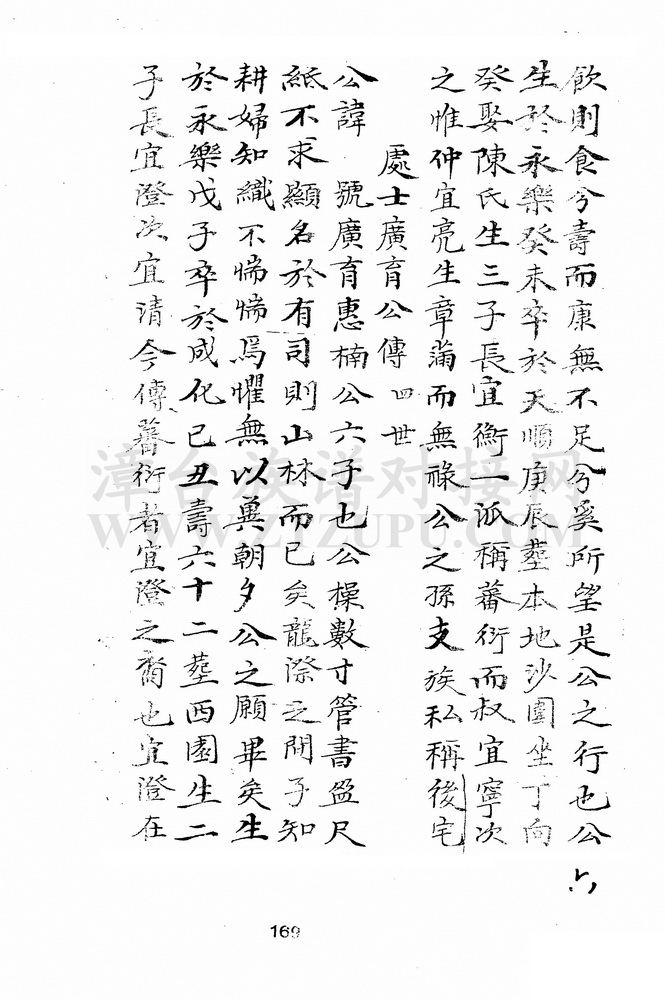 飲則食兮壽而康無不足兮奚所望是公之行也公
生於永樂癸未卒於天順庚辰塟本地沙園坐丁向
癸娶陳氏生三子長宜衡一派稱蕃衍而叔宜寧次
之惟仲宜亮生章蒲而無祿公之孫支族私稱後宅
處士廣育公傳 四世
公諱 號廣育惠楠公六子也公操數寸管書盈尺
紙不求顯名於有司則山林而已矣龍際之間子知
耕婦知織不惴惴焉懼無以奠朝夕公之願畢矣生
於永樂戊子卒於成化己丑壽六十二塟西園生二
子長宜澄次宜清今傳蕃衍者宜澄之裔也宜澄在
169
漳台族谱对接网
WWW.ZTZUPU.COM